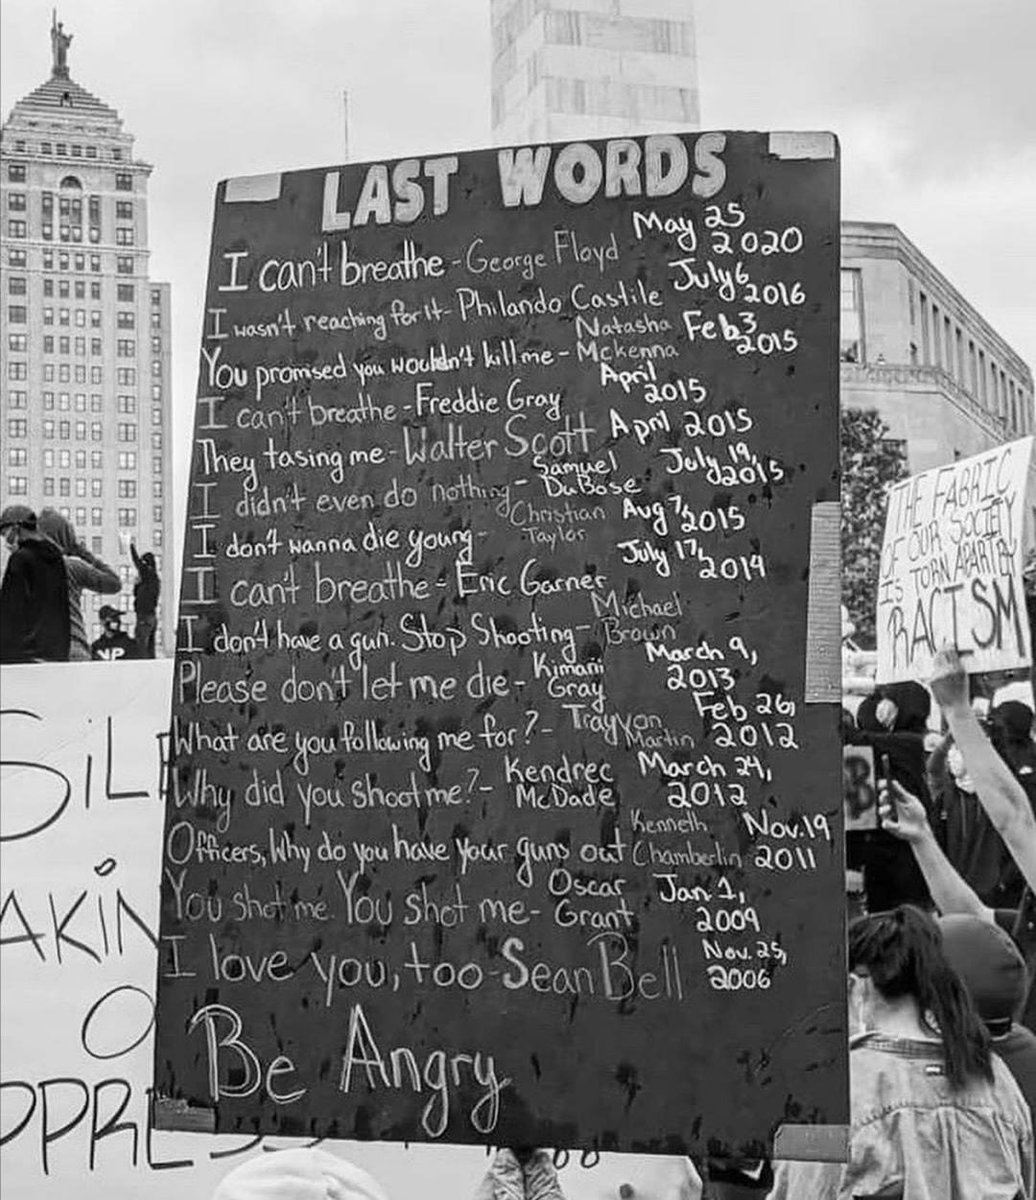 LAST WORDS
I can't breathe - George Floyd May 25 2020
I wasn't reaching for it - Philando Castile July 6, 2016
You promised you wouldn't kill me - Natasha Mckenna Feb 3 2015
I can't breathe - Freddie Gray April 2015
They tasing me - Walter Scott April 2015
I didn't even do nothing - Samuel DuBose July 19, 2015
I don't wanna die young - Christian Taylor Aug 7, 2015
I can't breathe - Eric Garner July 17, 2014
I don't have a gun. Stop Shooting - Michael Brown
Please don't let me die - Kimani Gray March 9, 2013
What are you following me for? - Trayvon Martin Feb 26, 2012
Why did you shoot me? - Kendrec McDade March 24, 2012
Officers, Why do you have your guns out Kenneth Chamberlin Nov. 19 2011
You shot me. You shot me - Oscar Grant Jan. 1, 2009
I love you, too - Sean Bell Nov. 25, 2006
Be Angry
THE FABRIC
OF OUR SOCIETY
IS TORN APART BY
RACISM
SiL
AKIN
O
PPRESS